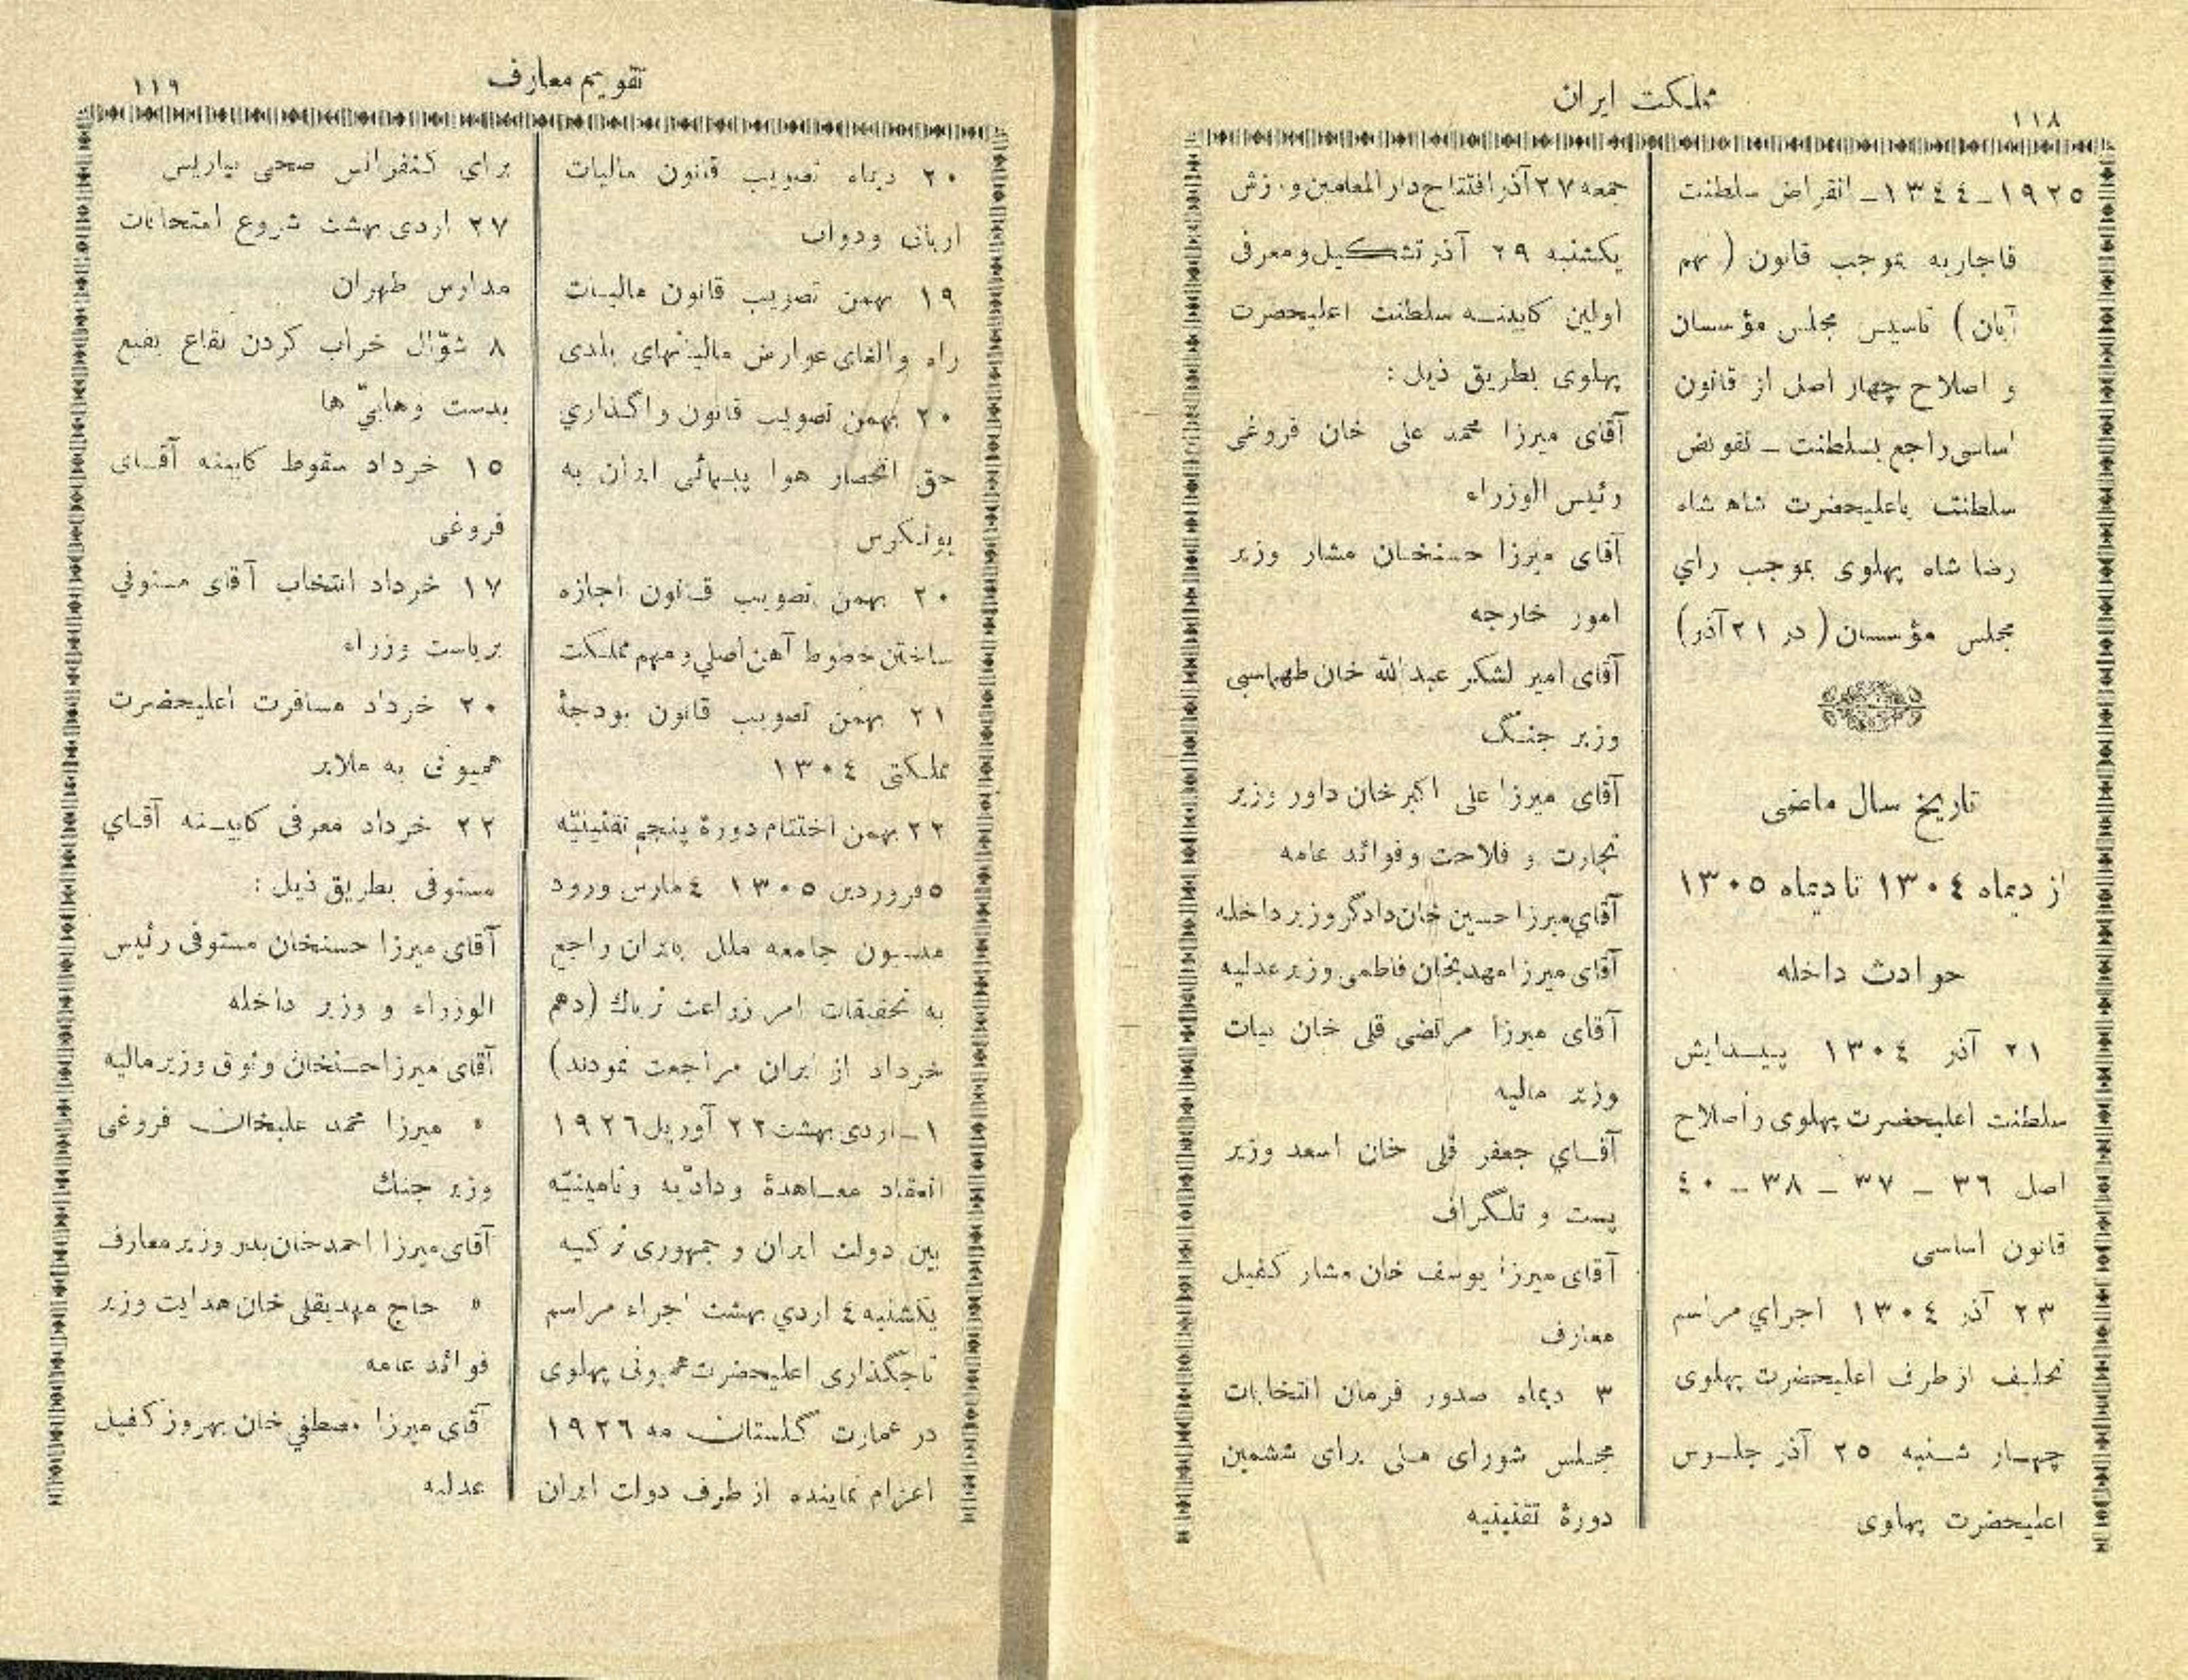 ۱۱۸
مملکت ایران
۱۹۲۵ـ۱۳٤٤ـ انقراض سلطنت
قاجاریه بموجب قانون ( نهم
آبان ) تاسیس مجلس مؤسسان
و اصلاح چهار اصل از قانون
اساسی راجع بسلطنت ـ تفویض
سلطنت باعلیحضرت شاه شاه
رضا شاه پهلوی بموجب رأي
مجلس مؤسسان ( در ۲۱ آذر)
تاریخ سال ماضی
از دیماه ۱۳۰٤ تا دیماه ۱۳۰۵
حوادث داخله
۲۱ آذر ۱۳۰٤ پیـدایش
سلطنت اعلیحضرت پهلوی و اصلاح
اصل ۳٦ ـ ۳۷ ـ ۳۸ ـ ٤۰
قانون اساسی
۲۳ آذر ۱۳۰٤ اجراي مراسم
تحلیف از طرف اعلیحضرت پهلوی
چهـار شـنبه ۲۵ آذر جلـوس
اعلیحضرت پهلوی
جمعه ۲۷ آذر افتتاح دار المعلمین ورزش
یکشنبه ۲۹ آذر تشکیل و معرفی
اولین کابینـه سلطنت اعلیحضرت
پهلوی بطریق ذیل :
آقای میرزا محمد علی خان فروغی
رئیس الوزراء
آقای میرزا حسنخـان مشار وزیر
امور خارجه
آقای امیر لشکر عبدالله خان طهماسبی
وزیر جنـگ
آقای میرزا علی اکبر خان داور وزیر
تجارت و فلاحت و فوائد عامه
آقاي میرزا حسین خان دادگر وزیر داخله
آقای میرزا مهدیخان فاطمی وزیر عدلیه
آقای میرزا مرتضی قلی خان بیات
وزیر مالیه
آقـاي جعفر قلی خان اسعد وزیر
پست و تلـگراف
آقای میرزا یوسف خان مشار کفیل
معارف
۳ دیماه صدور فرمان انتخابات
مجـلس شورای ملی برای ششمین
دورۀ تقنینیه
تقویم معارف
۱۱۹
۲۰ دیماه تصویب قانون مالیات
اربابی و دواب
۱۹ بهمن تصویب قانون مالیـات
راه و الغای عوارض مالیاتهای بلدی
۲۰ بهمن تصویب قانون واگـذاري
حق انحصار هوا پیـمائی ایران به
یونـکرس
۲۰ بهمن تصویب قـانون اجازه
ساختن خطوط آهن اصلي و مهم مملـکت
۲۱ بهمن تصویب قانون بودجۀ
مملـکتی ۱۳۰٤
۲۲ بهمن اختتام دورۀ پنجم تقنینیّه
۵ فروردین ۱۳۰۵ ٤ مارس ورود
مسـیون جامعه ملل بایران راجع
به تحقیقات امر زراعت تریاك (دهم
خرداد از ایران مراجعت نمودند)
۱ـ اردی بهشت ۲۲ آوریل ۱۹۲٦
انعقاد معـاهدۀ ودادّیه و تامینیّه
بین دولت ایران و جمهوری ترکیه
یکشنبه ٤ اردي بهشت اجراء مراسم
تاجگذاری اعلیحضرت همیونی پهلوی
در عمارت گلستان مه ۱۹۲٦
اعزام نماینده از طرف دولت ایران
برای کنفرانس صحی بپاریس
۲۷ اردی بهشت شروع امتحانات
مدارس طهران
۸ شوّال خراب کردن بقاع بقیع
بدست وهابیّ ها
۱۵ خرداد سقوط کابینه آقـای
فروغی
۱۷ خرداد انتخاب آقای مستوفي
بریاست وزراء
۲۰ خرداد مسافرت اعلیحضرت
همیونی به ملایر
۲۲ خرداد معرفی کابیـنه آقـاي
مستوفی بطریق ذیل :
آقای میرزا حسنخان مستوفی رئیس
الوزراء و وزیر داخله
آقای میرزا حسنخان وثوق وزیر مالیه
» میرزا محمد علیخان فروغی
وزیر جنك
آقای میرزا احمد خان بدر وزیر معارف
» حاج مهدیقلی خان هدایت وزیر
فوائد عامه
آقای میرزا مصطفي خان بهروز کفیل
عدلیه